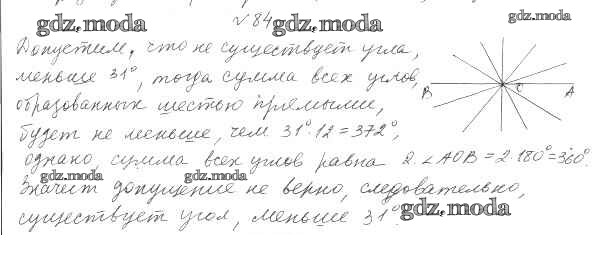 № 84
gdz.moda gdz.moda gdz.moda
Допустим, что не существует угла,
меньше 31°, тогда сумма всех углов,
образованных шестью прямыми,
будет не меньше, чем 31°·12=372°,
однако, сумма всех углов равна 2·∠AOB=2·180°=360°.
gdz.moda gdz.moda
Значит допущение не верно, следовательно,
существует угол, меньше 31°.
gdz.moda
B C A